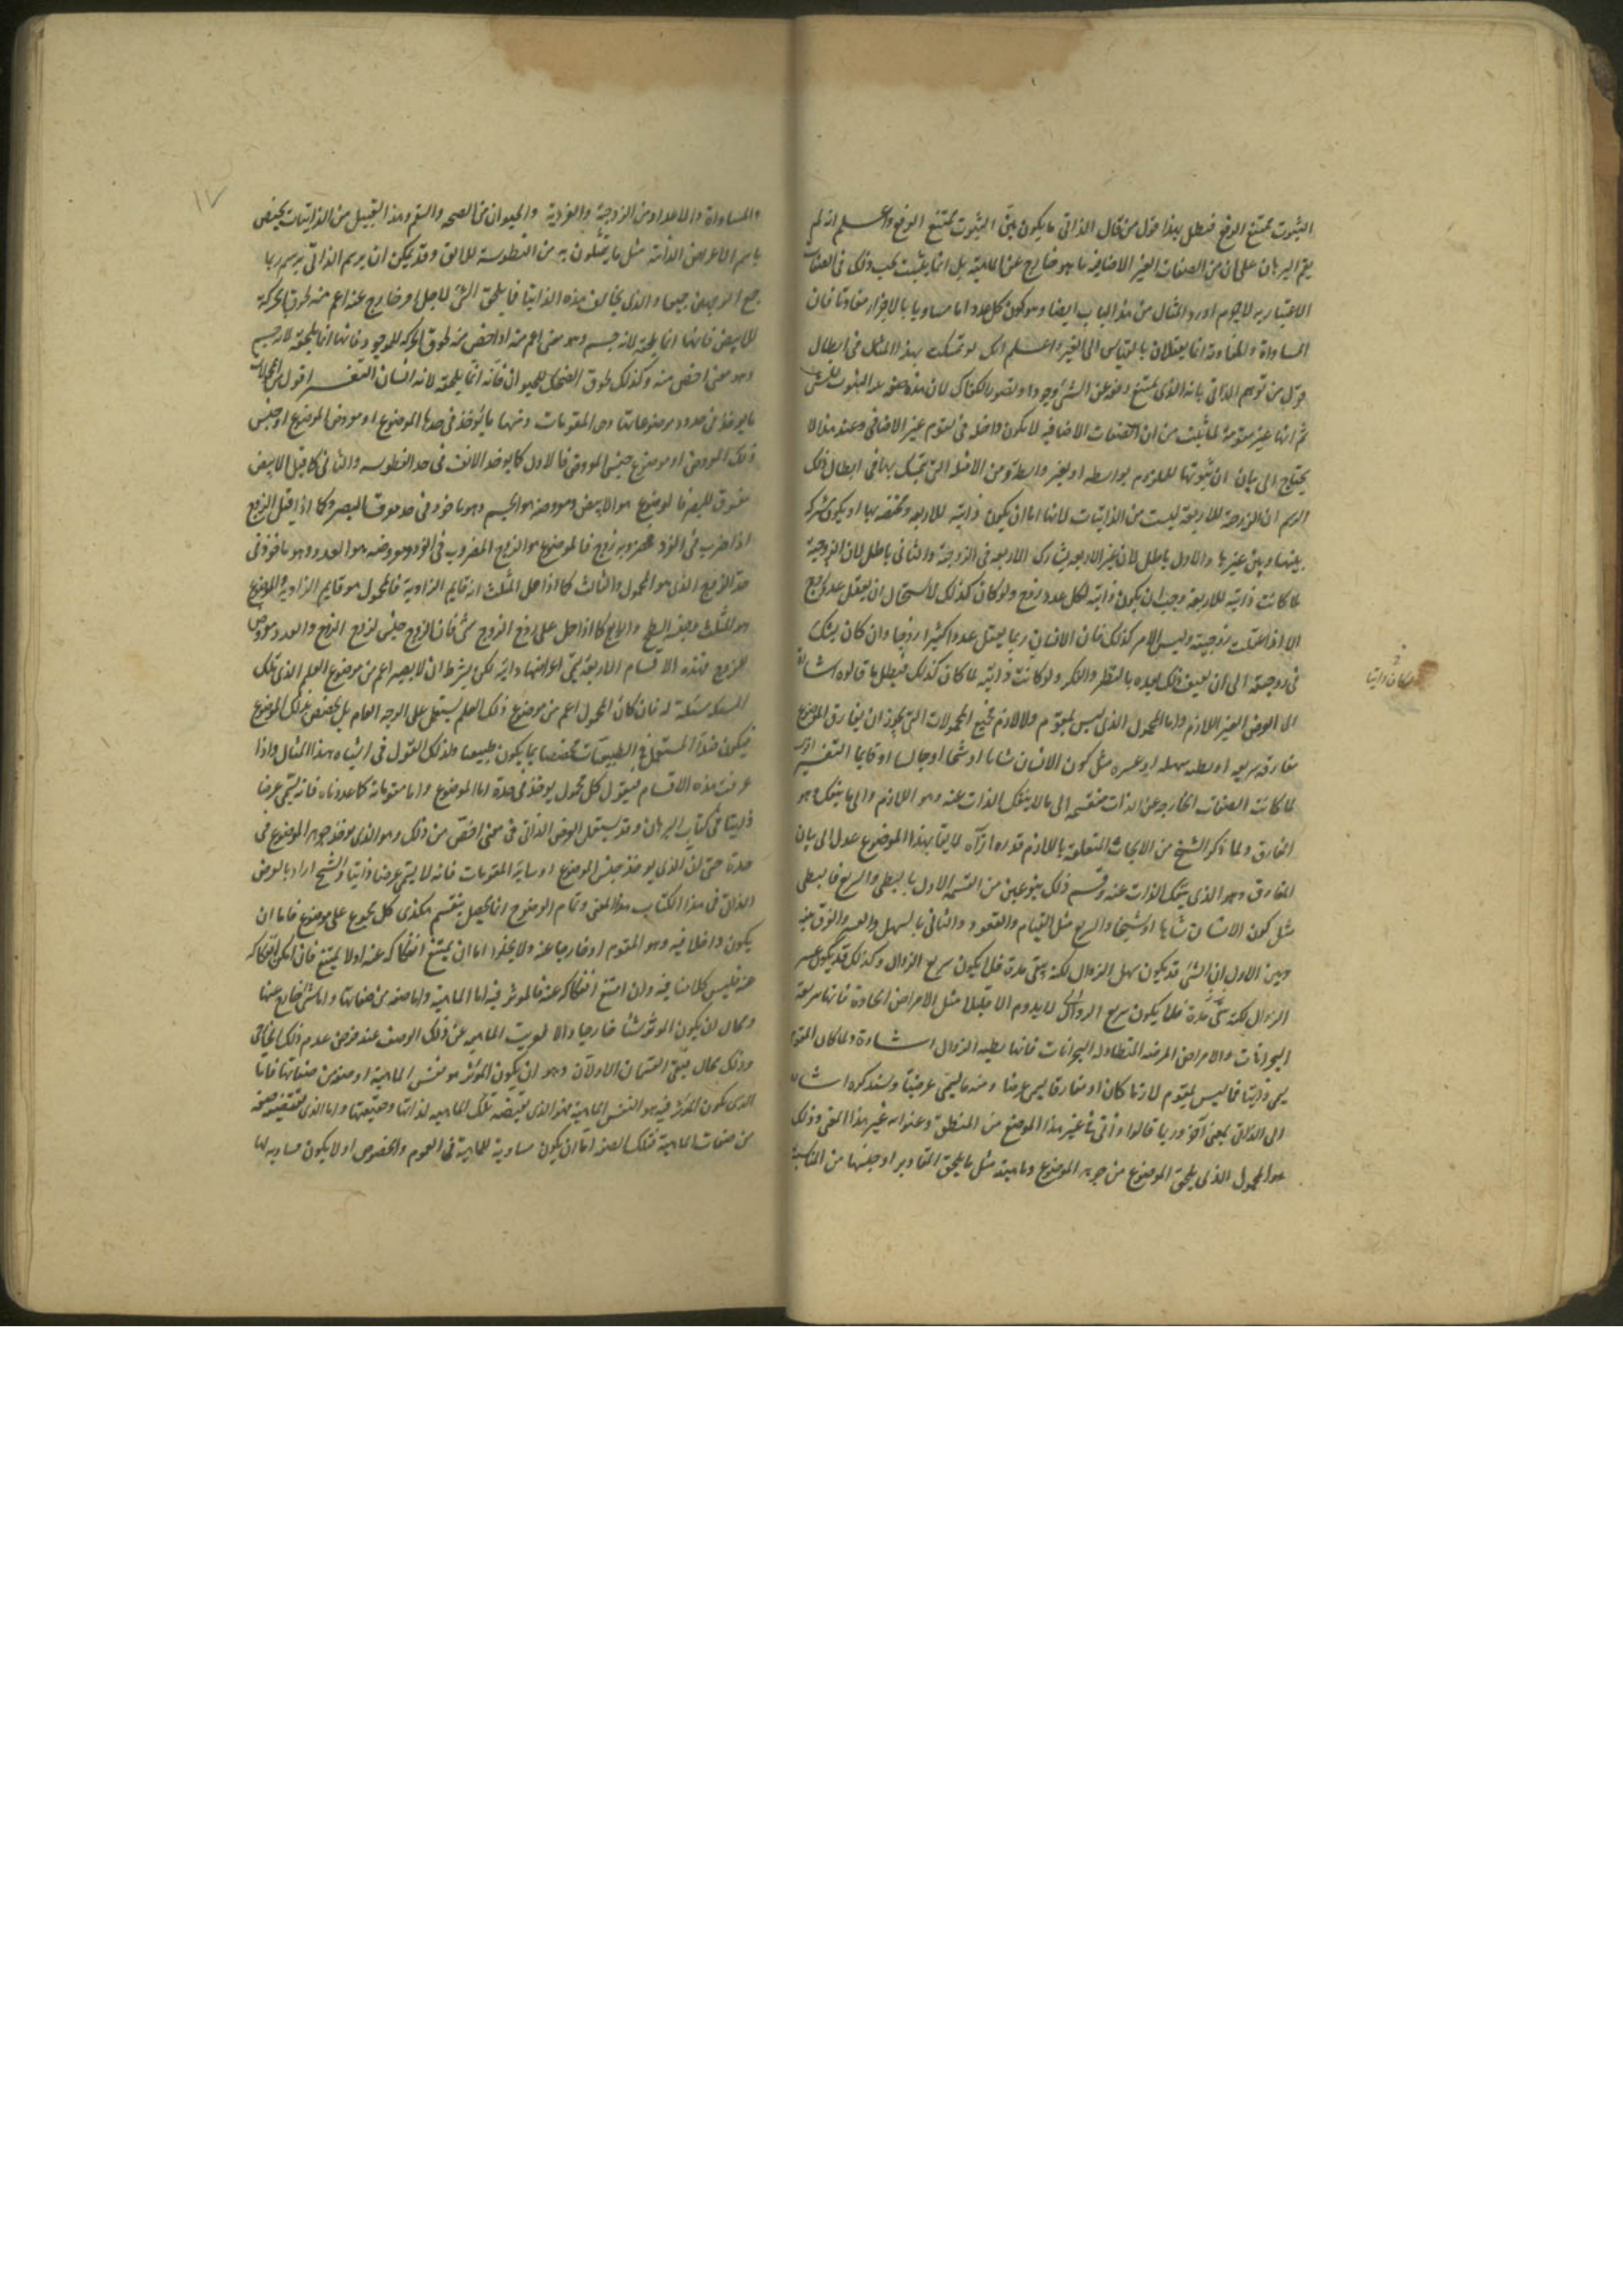 الثبوت يمتنع الرفع فبطل بهذا قول من قال الذاتى ما يكون بيّن الثبوت يمتنع الرفع واعلم انه لم
يقم البرهان على ان من الصفات الغير الاضافية ما هو خارج عن الماهية بل انما يثبت ذلك فى الصفات
الاعتباريه لاجرم اورد المثال من هذا الباب ايضا وهو كون كل عدد اما مساويا بالاجزاء متفاوتا فان
المساواة والمفاوتة انما يعقلان بالقياس الى الغير واعلم انك لو تمسكت بهذا المثل فى ابطال
قول من توهم الذاتى بانه الذى يمتنع رفعه عن الشئ وجودا وتصورا لكفاك لان هذه صفه
ثم انها غير مقومة لما ثبت من ان الصفات الاضافيه لا يكون داخله فى تقوم غير الاضافى وعند هذا لا
يحتاج الى بيان ان ثبوتها للملزوم بواسطه او بغير واسطة ومن الامثلة التى تمسك بها فى ابطال ذلك
الرسم ان الزوجية للاربعة ليست من الذاتيات لانها اما ان يكون ذاتيه للاربعه ومختصه بها او يكون مشتركه
بينها وبين غيرها والاول باطل لان غير الاربعه يشارك الاربعه فى الزوجية والثانى باطل لان الزوجية
لما كانت ذاتيه للاربعة وجب ان يكون ذاتيه لكل عدد زوج ولو كان كذلك لاستحال ان يعقل عدد زوج
الا اذا عقلت زوجيته وليس الامر كذلك فان الانسان ربما يعقل عددا كثيرا زوجا وان كان يشك
فى زوجيته الى ان يعرف ذلك بعده بالنظر والفكر ولو كانت ذاتيه لما كان كذلك فبطل ما قالوه اشارة
الى العرض الغير اللازم واما المحمول الذى ليس بمقوم ولا لازم فجميع المحمولات التى يجوز ان يفارق الموضوع
مفارقه سريعه او بطيه سهله او عسره مثل كون الانسان شابا او شيخا او جالسا او قايما التفسير
لما كانت الصفات الخارجه عن الذات منقسمه الى ما لا ينفك الذات عنه وهو اللازم والى ما ينفك وهو
المفارق ولما ذكر الشيخ من الابحاث المتعلقة باللازم قدر ما رآه لايقا بهذا الموضوع عدل الى بيان
المفارق وهو الذى ينفك الذات عنه وقسم ذلك بنوعين من القسمه الاول بالبطى والسريع فالبطى
مثل كون الانسان شابا او شيخا والسريع مثل القيام والقعود والثانى بالسهل والعسر والفرق بينه
وبين الاول ان الشئ قد يكون سهل الزوال لكنه يبقى مدة فلا يكون سريع الزوال وكذلك قد يكون عسر
الزوال لكنه مدة فلا يكون سريع الزوال لا يدوم الا قليلا مثل الامراض الحادة فانها سريعة
البحرانات والامراض المزمنه المتطاوله البحرانات فانها بطيه الزوال اشارة ولما كان المقوم
يسمى ذاتيا فما ليس بمقوم لازما كان او مفارقا يسمى عرضيا ومنه ما يسمى عرضا وسنذكره اشارة
الى الذاتى بمعنى آخر وربما قالوا ذاتى فى غير هذا الموضع من المنطق وعنوا به غير هذا المعنى وذلك
هو المحمول الذى يلحق الموضوع من جوهر الموضوع وماهيته مثل ما يلحق المقادير او جنسها من المناسبة
والمساواة والاعداد من الزوجية والفردية والحيوان من الصحه والسقم وهذا القبيل من الذاتيات يخص
باسم الاعراض الذاتية مثل ما يتمثلون به من الفطوسة للانف وقد يمكن ان يرسم الذاتى برسم ربما
جمع الوجهين جميعا والذى يخالف هذه الذاتيات فما يلحق الشئ لاجل امر خارج عنه اعم منه لحوق الحركة
للابيض فانها انما يلحقه لانه جسم وهو معنى اعم منه او اخص منه لحوق الحركه للموجود فانها انما يلحقه لانه جسم
وهو معنى اخص منه وكذلك لحوق الضحك للحيوان فانه انما يلحقه لانه انسان التفسير اقول من المحمولات
ما يوخذ فى حدود موضوعاتها وهى المقومات ومنها ما يؤخذ فى حدها الموضوع او معروض الموضوع او جنس
ذلك المعروض او موضوع جنس المعروض فالاول كما يوخذ الانف فى حد الفطوسه والثانى كما قيل الابيض
مفرق للبصر فالموضوع هو الابيض ومعروضه هو الجسم وهو ماخوذ فى حد مفرق البصر وكما اذا قيل الزوج
اذا ضرب فى الفرد فمضروبه زوج فالموضوع هو الزوج المضروب فى الفرد ومعروضه هو العدد وهو ماخوذ فى
حد الزوج الذى هو المحمول والثالث كما اذا حمل المثلث انه قايم الزاوية فالمحمول هو قايم الزاوية والموضوع
هو المثلث وجنسه السطح والرابع كما اذا حمل على زوج الزوج شئ فان الزوج جنس لزوج الزوج والعدد معروض
للزوج فهذه الاقسام الاربعة يسمى اعراضها ذاتيه لكن بشرط ان لا يصير اعم من موضوع العلم الذى تلك
المسئله مسئلة له فان كان المحمول اعم من موضوع ذلك العلم لم يستعمل على الوجه العام بل يخصص بذلك الموضوع
فيكون المستعمل فى الطبيعيات مخصصا بما يكون طبيعيا وكذلك القول فى اشباه هذا المثال واذا
عرفت هذه الاقسام فنقول كل محمول يوخذ فى حده اما الموضوع واما مقوماته كما عددناه فانه يسمى عرضا
ذاتيا فى كتاب البرهان وقد يستعمل العرض الذاتى فى معنى اخص من ذلك وهو الذى يوخذ جوهر الموضوع فى
حده حتى ان الذى يوخذ جنس الموضوع او ساير المقومات فانه لا يسمى عرضا ذاتيا والشيخ اراد بالعرض
الذاتى فى هذا الكتاب هذا المعنى وتمام الوضوح انما يحصل بتقسيم هكذى كل محمول على موضوع فاما ان
يكون داخلا فيه وهو المقوم او خارجا عنه ولا يخلو اما ان يمتنع انفكاكه عنه او لا يمتنع فان امكن انفكاكه
عنه فليس كلامنا فيه وان امتنع انفكاكه عنه فالموثر فيه اما الماهية واما صفه من صفاتها واما شئ خارج عنها
ومحال ان يكون الموثر شئا خارجيا والا لعريت الماهيه عن ذلك الوصف عند فرض عدم ذلك الخارجى
وذلك محال فبقى القسمان الاولان وهو ان يكون المؤثر هو نفس الماهية او صفه من صفاتها فاما
الذى يكون المؤثر فيه هو النفس الماهية فهو الذى يقتضيه تلك الماهيه لذاتها وحقيقتها واما الذى تقتضيه صفة
من صفات الماهية فتلك الصفه اما ان يكون مساوية للماهية فى العموم والخصوص او لا يكون مساويه لها
١٧